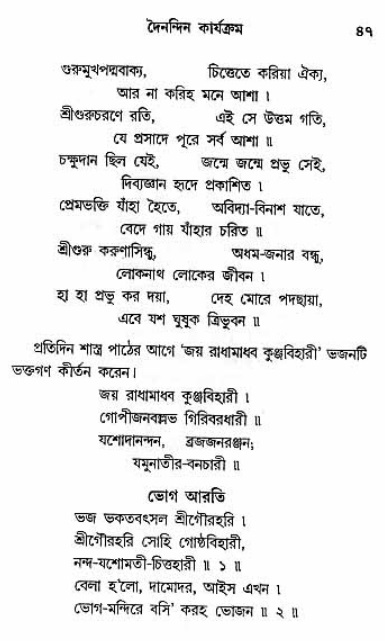 দৈনন্দিন কার্যক্রম ৪৭
গুরুমুখপদ্মবাক্য, চিত্তেতে করিয়া ঐক্য,
আর না করিহ মনে আশা ।
শ্রীগুরুচরণে রতি, এই সে উত্তম গতি,
যে প্রসাদে পূরে সর্ব আশা ॥
চক্ষুদান ছিল যেই, জন্মে জন্মে প্রভু সেই,
দিব্যজ্ঞান হৃদে প্রকাশিত ।
প্রেমভক্তি যাঁহা হৈতে, অবিদ্যা-বিনাশ যাতে,
বেদে গায় যাঁহার চরিত ॥
শ্রীগুরু করুণাসিন্ধু, অধম-জনার বন্ধু,
লোকনাথ লোকের জীবন ।
হা হা প্রভু কর দয়া, দেহ মোরে পদছায়া,
এবে যশ ঘুষুক ত্রিভুবন ॥
প্রতিদিন শাস্ত্র পাঠের আগে ‘জয় রাধামাধব কুঞ্জবিহারী’ ভজনটি
ভক্তগণ কীর্তন করেন।
জয় রাধামাধব কুঞ্জবিহারী ।
গোপীজনবল্লভ গিরিবরধারী ॥
যশোদানন্দন, ব্রজজনরঞ্জন;
যমুনাতীর-বনচারী ॥
ভোগ আরতি
ভজ ভকতবৎসল শ্রীগৌরহরি ।
শ্রীগৌরহরি সোহি গোষ্ঠবিহারী,
নন্দ-যশোমতী-চিত্তহারী ॥ ১ ॥
বেলা হ'লো, দামোদর, আইস এখন ।
ভোগ-মন্দিরে বসি' করহ ভোজন ॥ ২ ॥